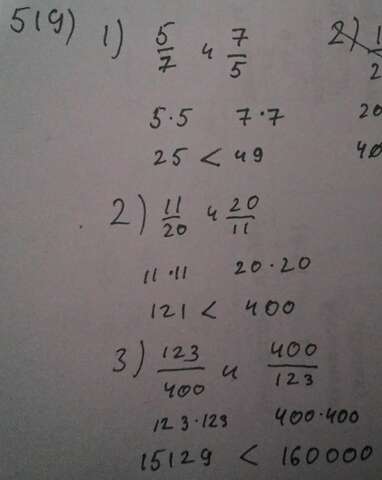 519) 1) 5/7 и 7/5
5·5 7·7
25 < 49
2) 11/20 и 20/11
11·11 20·20
121 < 400
3) 123/400 и 400/123
123·123 400·400
15129 < 160000
2) 1
2
20
40